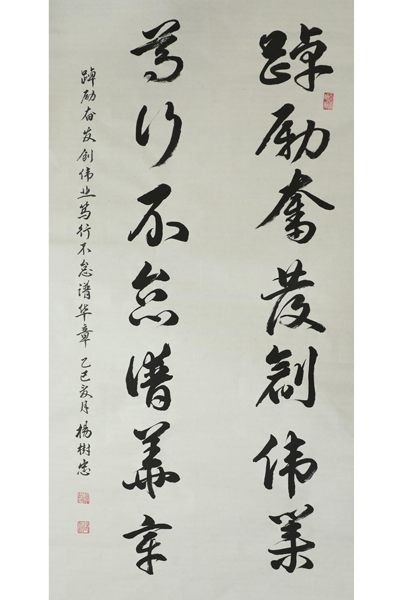 踔励奋發創伟業
笃行不怠谱華章
踔励奋发创伟业笃行不怠谱华章 乙巳夏月 杨樹忠